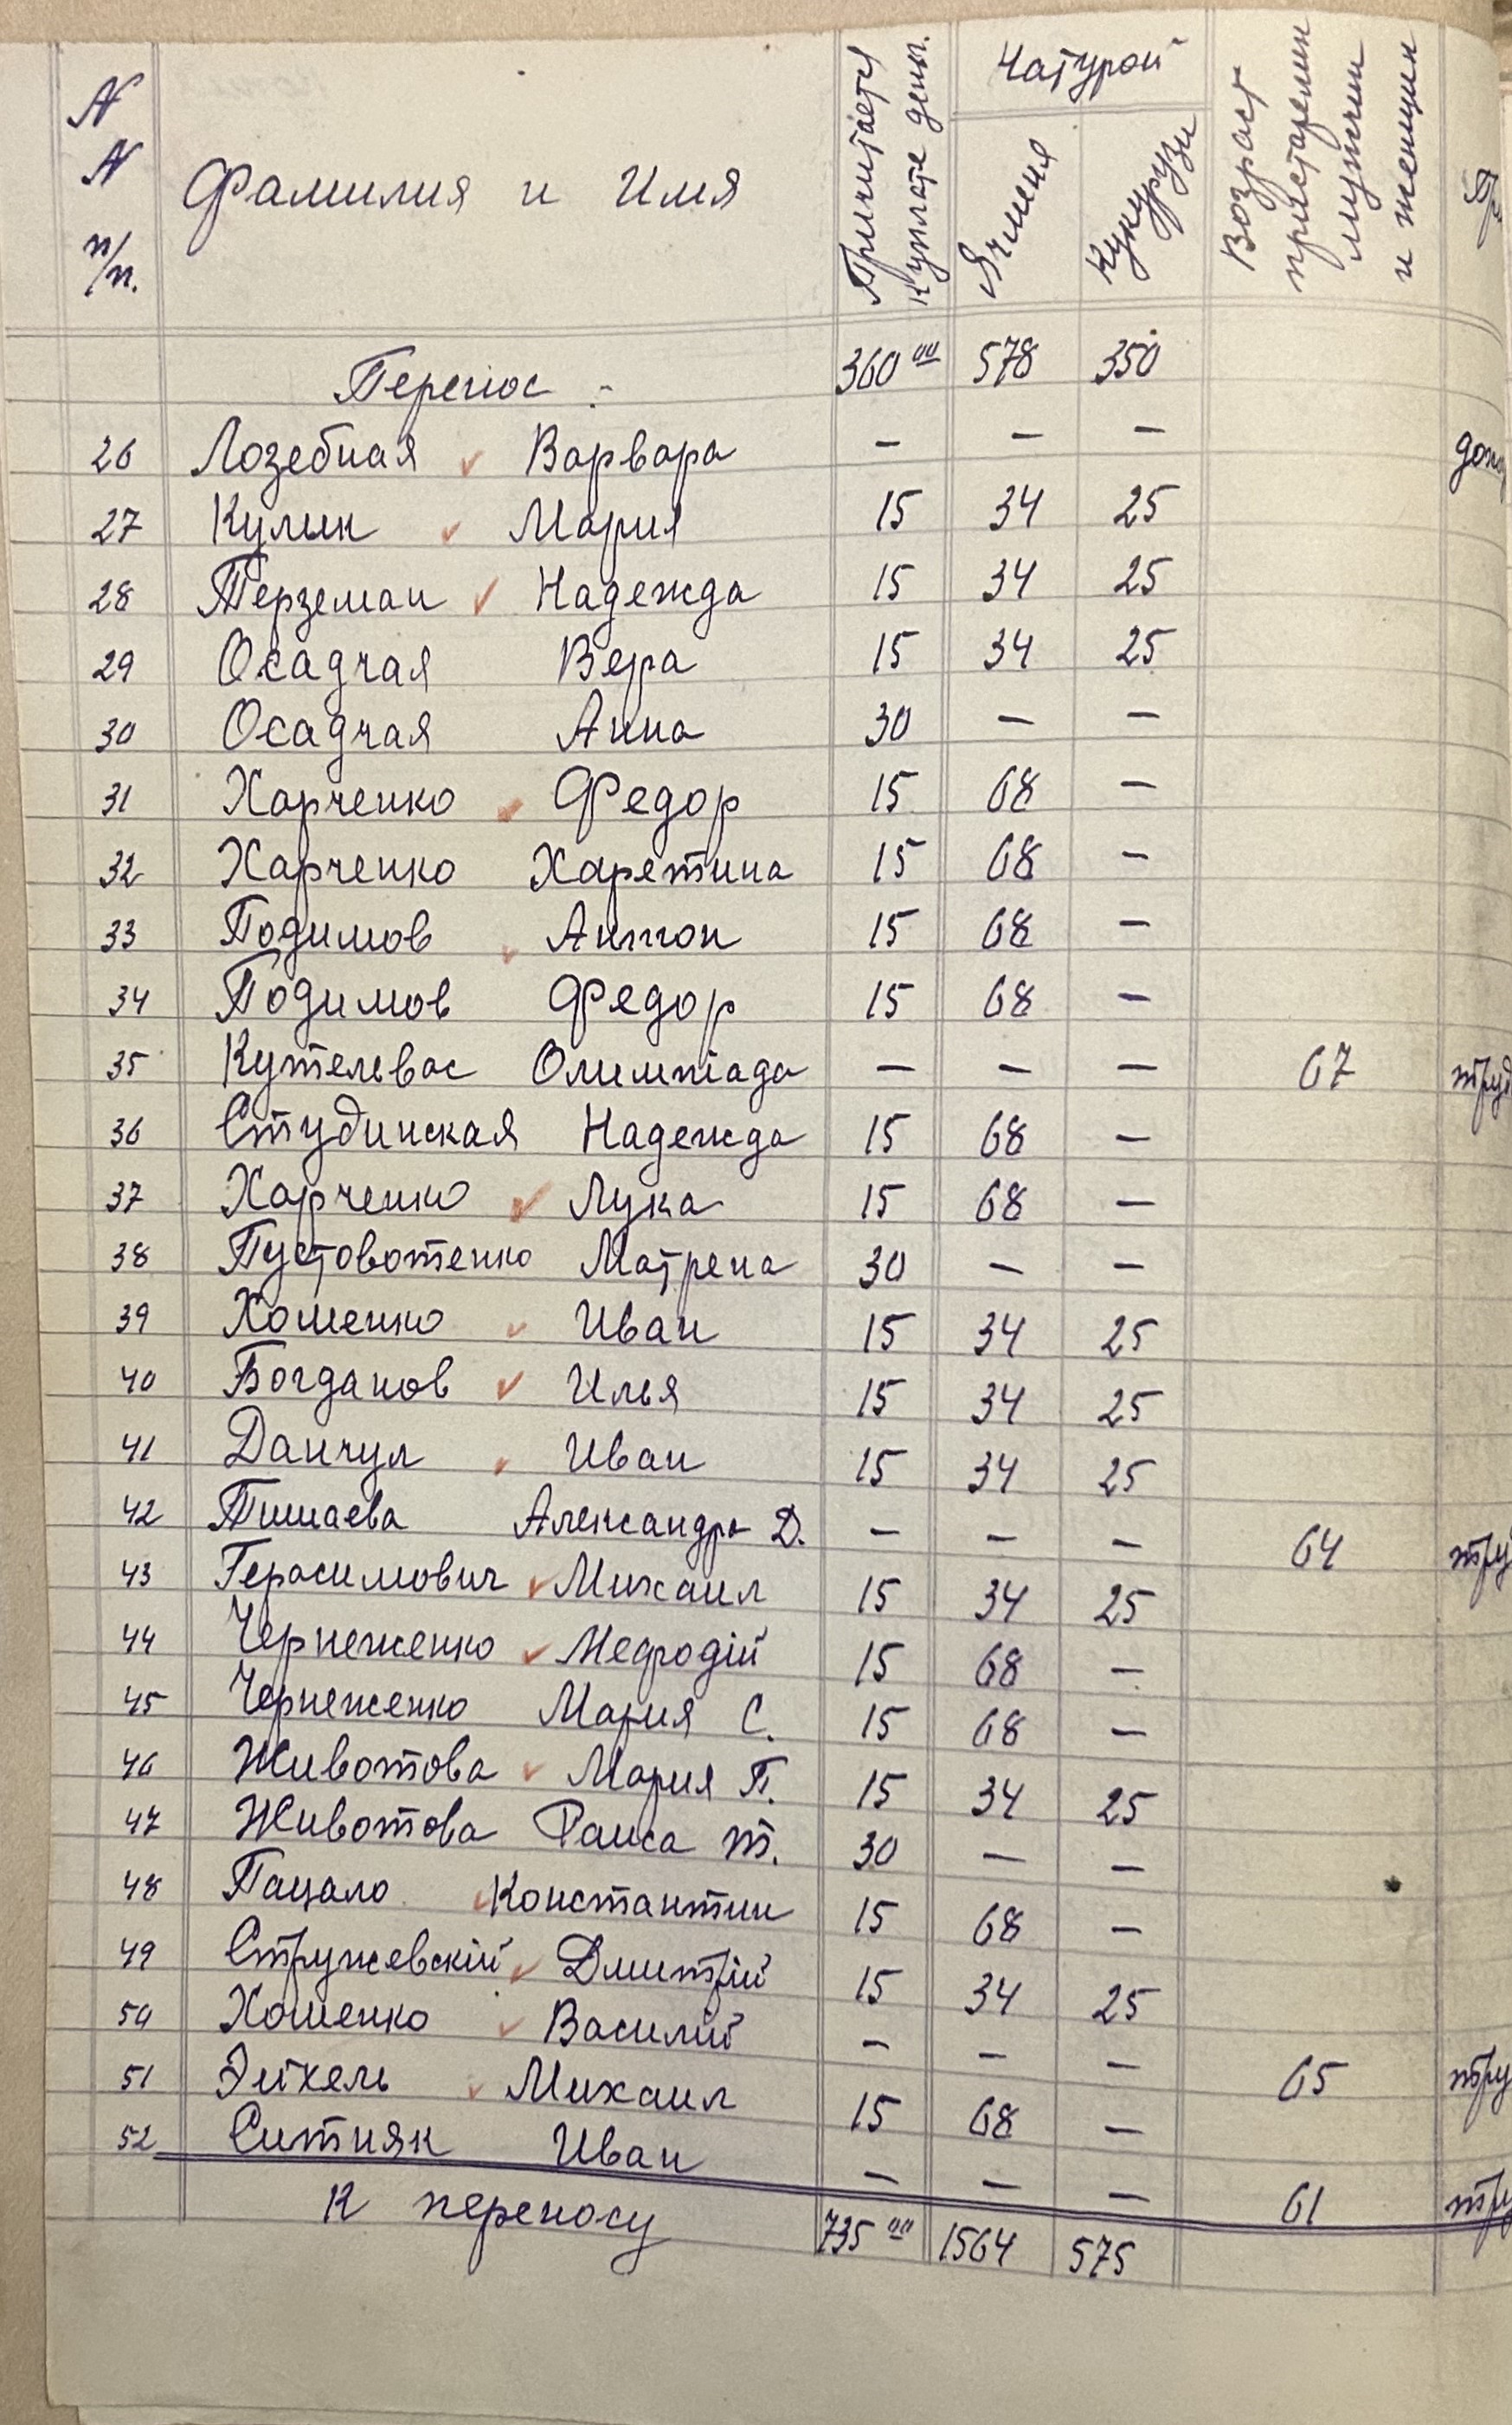 N N п/п. Фамилия и Имя Причитается к уплате деньг. Натурой Ячменя Кукурузы Возраст престарелых мужчин и женщин
Перенос - 360 00 578 350
26 Лозебная Варвара — — —
27 Кулик Мария 15 34 25
28 Терземан Надежда 15 34 25
29 Осадчая Вера 15 34 25
30 Осадчая Анна 30 — —
31 Харченко Федор 15 68 —
32 Харченко Харетина 15 68 —
33 Подимов Антон 15 68 —
34 Подимов Федор 15 68 —
35 Кутелевас Олимпіада — — — 67 труд
36 Студинская Надежда 15 68 —
37 Харченко Лука 15 68 —
38 Пустовотенко Матрена 30 — —
39 Хоменко Иван 15 34 25
40 Богданов Илья 15 34 25
41 Данчул Иван 15 34 25
42 Тишаева Александра Д. — — — 64 тру
43 Герасимович Михаил 15 34 25
44 Чернеженко Мефодій 15 68 —
45 Чернеженко Мария С. 15 68 —
46 Животова Мария П. 15 34 25
47 Животова Раиса т. 30 — —
48 Пацало Константин 15 68 —
49 Стружевскій Дмитрій 15 34 25
50 Хоменко Василій — — — 65 тру
51 Эйхель Михаил 15 68 —
52 Ситняк Иван — — — 61 тру
К переносу 735 00 1564 575